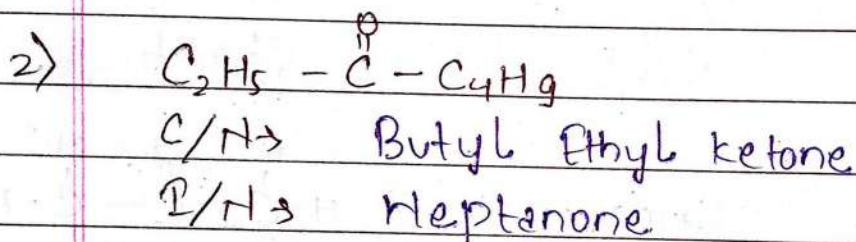 O
2) C₂H₅ - C - C₄H₉
C/N→ Butyl Ethyl ketone
I/N→ Heptanone